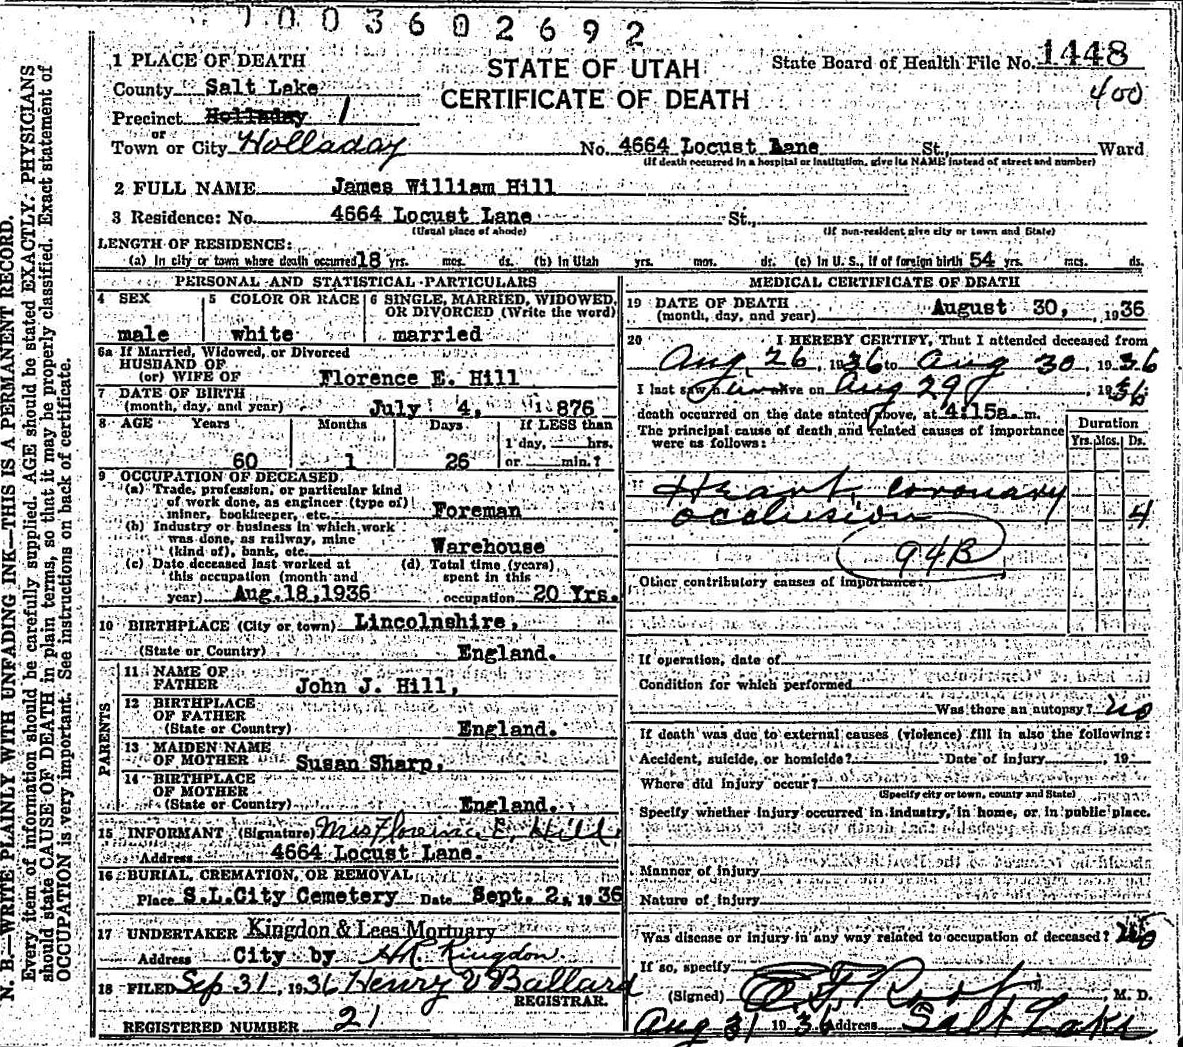 7003602692
1 PLACE OF DEATH
STATE OF UTAH
CERTIFICATE OF DEATH
State Board of Health File No. 1448
400
County Salt Lake
Precinct Holladay 1
or
Town or City Holladay No. 4664 Locust Lane St., Ward
(If death occurred in a hospital or institution, give its NAME instead of street and number)
2 FULL NAME James William Hill
3 Residence: No. 4664 Locust Lane St.,
(Usual place of abode) (If non-resident give city or town and State)
LENGTH OF RESIDENCE:
(a) In city or town where death occurred 18 yrs. mos. ds. (b) In Utah yrs. mos. ds. (c) In U. S., if of foreign birth 54 yrs. mos. ds.
PERSONAL AND STATISTICAL PARTICULARS
4 SEX 5 COLOR OR RACE 6 SINGLE, MARRIED, WIDOWED,
OR DIVORCED (Write the word)
male white married
6a If Married, Widowed, or Divorced
HUSBAND OF
(or) WIFE OF Florence E. Hill
7 DATE OF BIRTH
(month, day, and year) July 4, 1876
8 AGE Years Months Days If LESS than
1 day, hrs.
60 1 26 or min.?
9 OCCUPATION OF DECEASED
(a) Trade, profession, or particular kind
of work done, as engineer (type of)
miner, bookkeeper, etc. Foreman
(b) Industry or business in which work
was done, as railway, mine
(kind of), bank, etc. Warehouse
(c) Date deceased last worked at (d) Total time (years)
this occupation (month and spent in this
year) Aug. 18, 1936 occupation 20 Yrs.
10 BIRTHPLACE (City or town) Lincolnshire,
(State or Country) England.
PARENTS
11 NAME OF
FATHER John J. Hill,
12 BIRTHPLACE
OF FATHER
(State or Country) England.
13 MAIDEN NAME
OF MOTHER Susan Sharp,
14 BIRTHPLACE
OF MOTHER
(State or Country) England.
15 INFORMANT (Signature) Mrs Florence E. Hill
Address 4664 Locust Lane.
16 BURIAL, CREMATION, OR REMOVAL
Place S.L.City Cemetery Date Sept. 2, 1936
17 UNDERTAKER Kingdon & Lees Mortuary
Address City by H.R. Kingdon
18 FILED Sep 31, 1936 Henry V Ballard
REGISTRAR.
REGISTERED NUMBER 21
MEDICAL CERTIFICATE OF DEATH
19 DATE OF DEATH
(month, day, and year) August 30, 1936
20 I HEREBY CERTIFY, That I attended deceased from
Aug 26, 1936 to Aug 30, 1936
I last saw him alive on Aug 29, 1936
death occurred on the date stated above, at 4:15a. m.
The principal cause of death and related causes of importance
were as follows:
Duration
Yrs. Mos. Ds.
Heart, coronary
occlusion 4
94B
Other contributory causes of importance:
If operation, date of
Condition for which performed
Was there an autopsy? no
If death was due to external causes (violence) fill in also the following:
Accident, suicide, or homicide? Date of injury , 19
Where did injury occur?
(Specify city or town, county and State)
Specify whether injury occurred in industry, in home, or in public place.
Manner of injury
Nature of injury
Was disease or injury in any way related to occupation of deceased? no
If so, specify
(Signed) Root M. D.
Aug 31 1936 Address Salt Lake
N. B.—WRITE PLAINLY WITH UNFADING INK—THIS IS A PERMANENT RECORD.
Every item of information should be carefully supplied. AGE should be stated EXACTLY. PHYSICIANS
should state CAUSE OF DEATH in plain terms, so that it may be properly classified. Exact statement of
OCCUPATION is very important. See instructions on back of certificate.